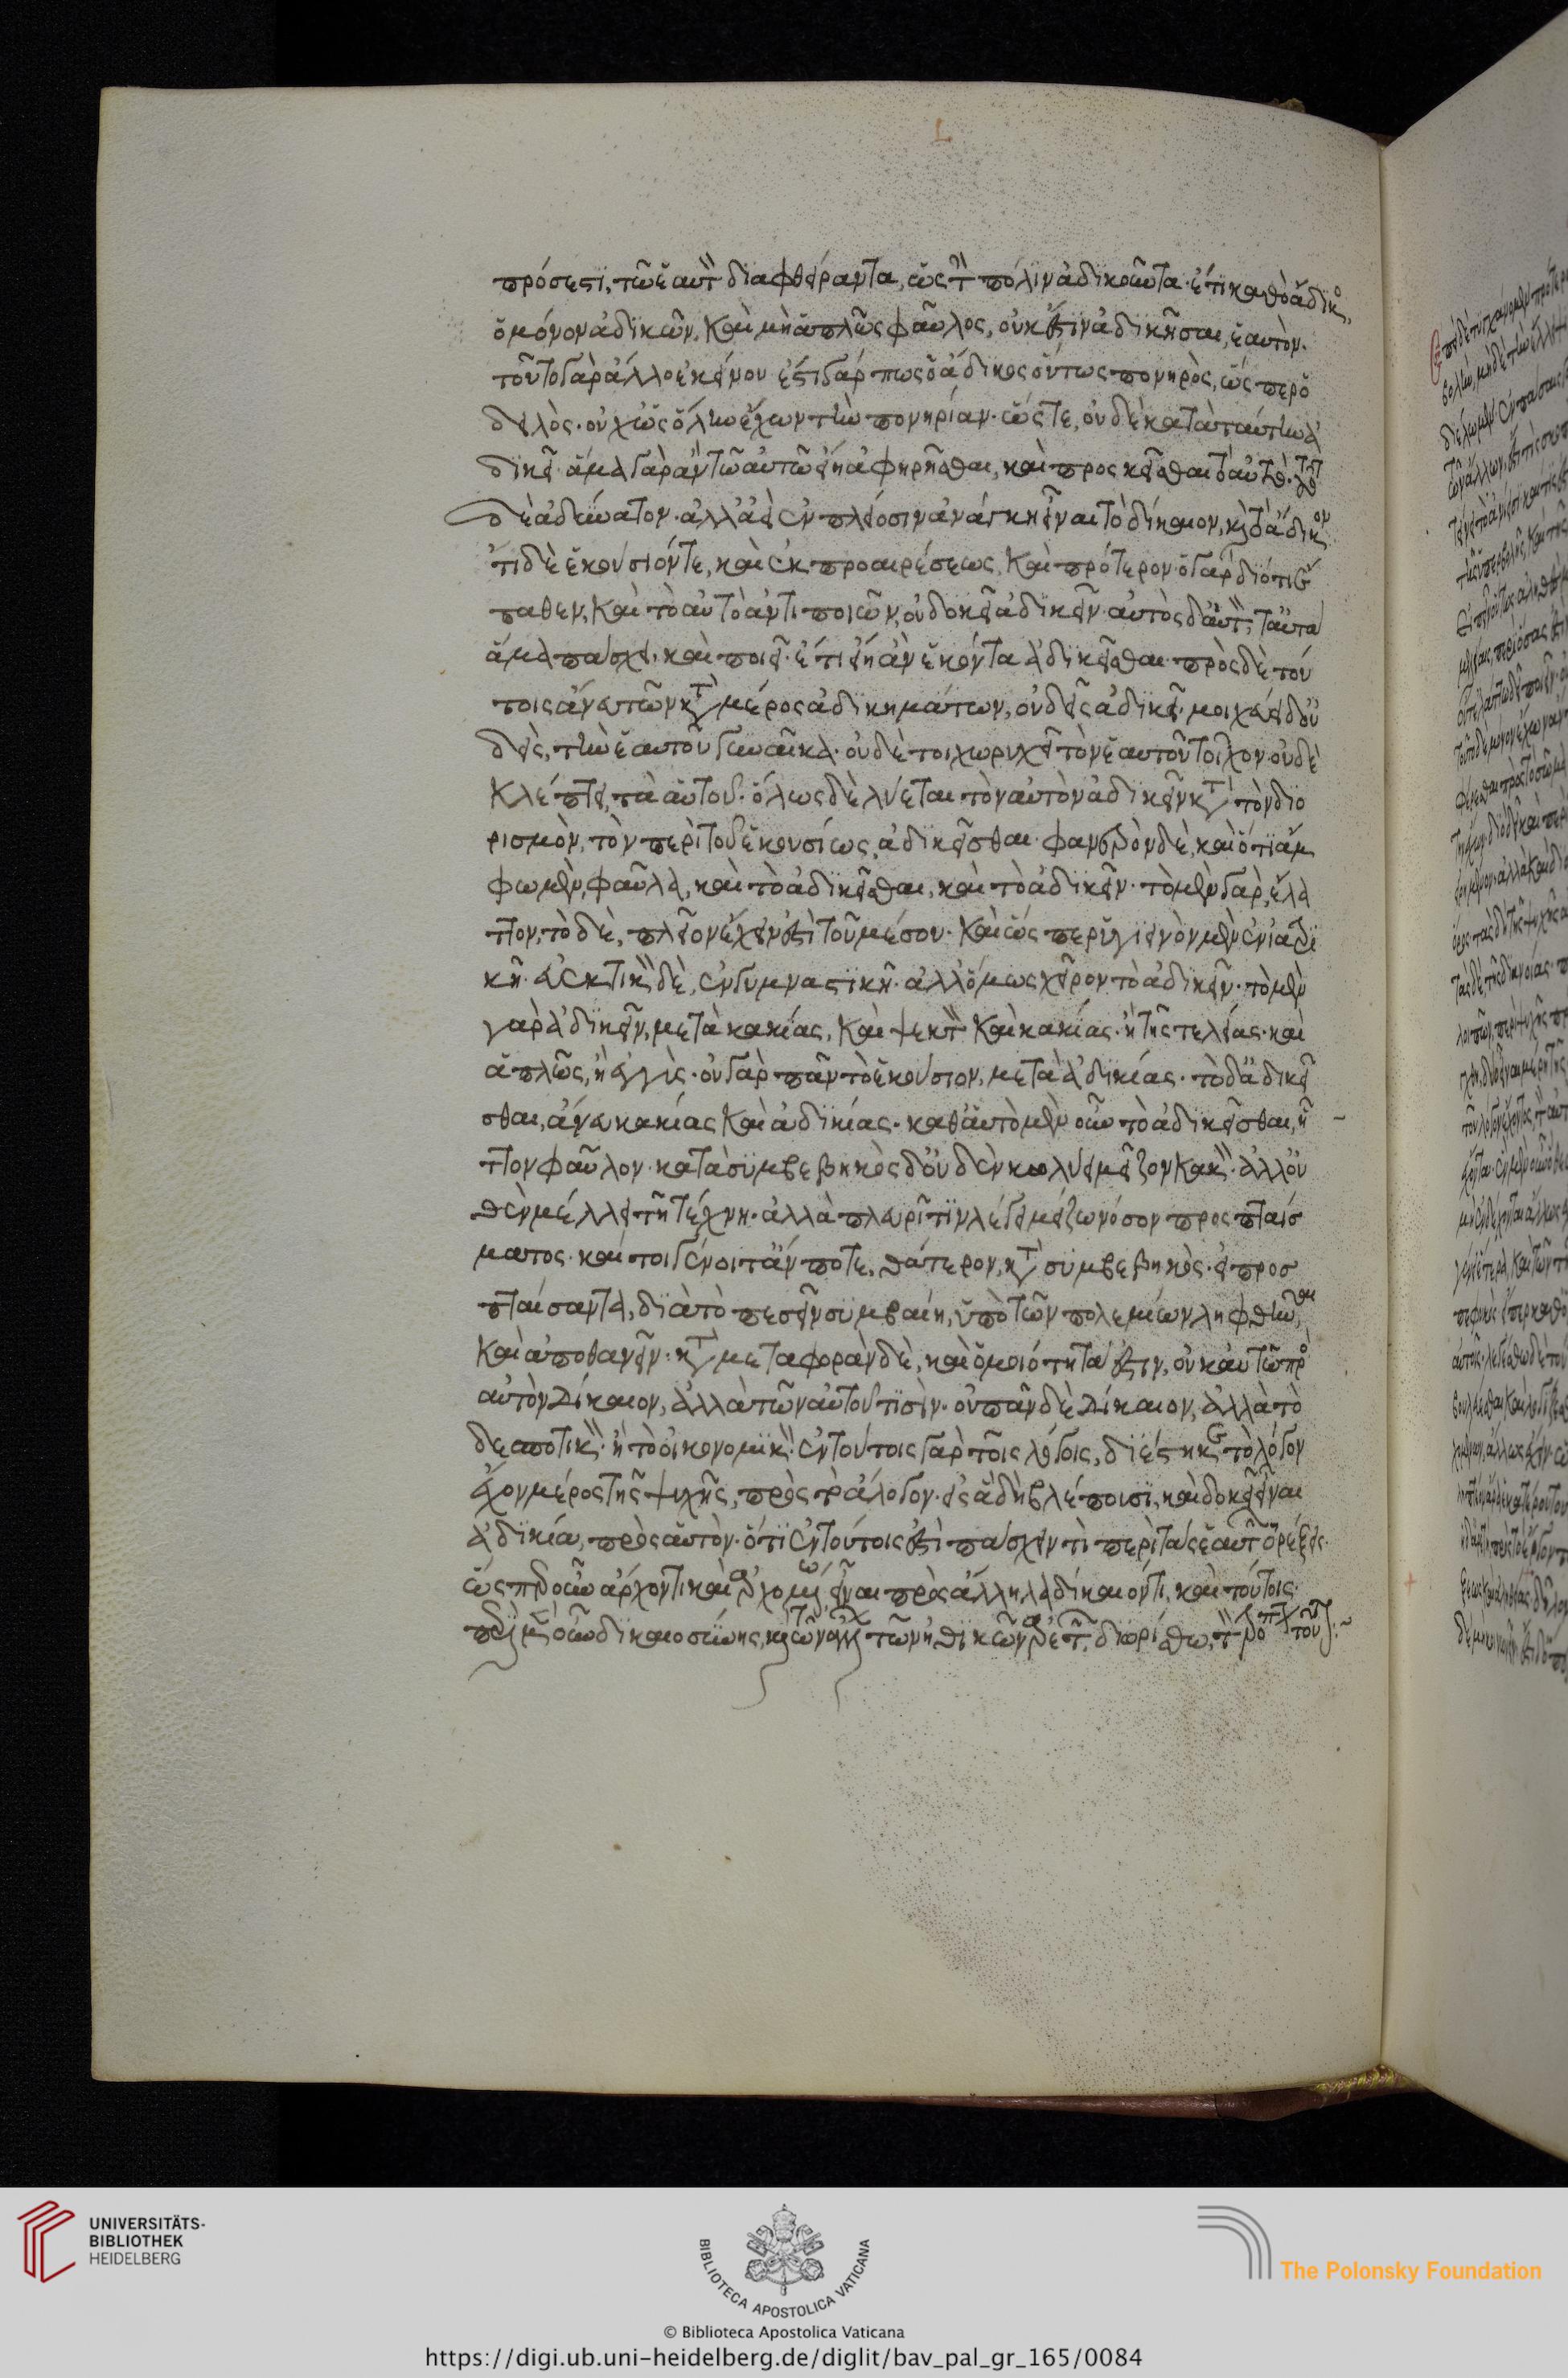 πρόσεστι, τῶ ἑαυτὸν διαφθείραντα, ὡς τὴν πόλιν ἀδικοῦντα. ἔτι καθὸ ἄδικος,
ὁ μόνον ἀδικῶν, καὶ μὴ ἁπλῶς φαῦλος, οὐκ ἔστιν ἀδικῆσαι, ἑαυτόν.
τοῦτο γὰρ ἄλλο ἐκείνου ἔστι γάρ πως ὁ ἄδικος οὕτως πονηρὸς, ὥσπερ ὁ
δειλὸς. οὐχ ὡς ὅλην ἔχων τὴν πονηρίαν. ὥστε, οὐδὲ κατὰ ταύτην ἀ
δικεῖ. ἅμα γὰρ ἂν τῶ αὐτῶ εἴη ἀφηρῆσθαι, καὶ προσκεῖσθαι τὸ αὐτό. τοῦτο
δὲ ἀδύνατον. ἀλλ' ἀεὶ ἐν πλείοσιν ἀνάγκη εἶναι τὸ δίκαιον, καὶ τὸ ἄδικον
ἔτι δὲ ἑκούσιόν τε, καὶ ἐκ προαιρέσεως, καὶ πρότερον. ὁ γὰρ διότι ἔ
παθεν, καὶ τὸ αὐτὸ ἀντιποιῶν, οὐ δοκεῖ ἀδικεῖν. αὐτὸς δ' αὑτὸν, ταὐτα
ἅμα πάσχει, καὶ ποιεῖ. ἔτι εἴη ἂν ἑκόντα ἀδικεῖσθαι. πρὸς δὲ τού
τοις ἄνευ τῶν κατὰ μέρος ἀδικημάτων, οὐδεὶς ἀδικεῖ. μοιχεύει δ' οὐ
δεὶς, τὴν ἑαυτοῦ γυναῖκα. οὐδὲ τοιχωρυχεῖ τὸν ἑαυτοῦ τοῖχον. οὐδὲ
κλέπτει, τὰ αὑτοῦ. ὅλως δὲ λύεται τὸν αὐτὸν ἀδικεῖν κατὰ τὸν διο
ρισμὸν, τὸν περὶ τοῦ ἑκουσίως, ἀδικεῖσθαι. φανερὸν δὲ, καὶ ὅτι ἄμ
φω μὲν, φαῦλα, καὶ τὸ ἀδικεῖσθαι, καὶ τὸ ἀδικεῖν. τὸ μὲν γὰρ, ἔλα
ττον, τὸ δὲ, πλεῖον ἔχειν ἐστὶ τοῦ μέσου. καὶ ὥσπερ ὑγιεινὸν μὲν ἐν ἰατρι
κῆ. εὐεκτικὸν δὲ, ἐν γυμναστικῆ. ἀλλ' ὅμως χεῖρον τὸ ἀδικεῖν. τὸ μὲν
γὰρ ἀδικεῖν, μετὰ κακίας, καὶ ψεκτὸν καὶ κακίας. ἢ τῆς τελείας. καὶ
ἁπλῶς, ἢ ἐγγὺς. οὐ γὰρ πᾶν τὸ ἑκούσιον, μετὰ ἀδικίας. τὸ δ' ἀδικεῖ
σθαι, ἄνευ κακίας καὶ ἀδικίας. καθ' αὑτὸ μὲν οὖν τὸ ἀδικεῖσθαι, ἧ
ττον φαῦλον. κατὰ συμβεβηκὸς δ' οὐδὲν κωλύει μεῖζον κακὸν. ἀλλ' οὐ
θὲν μέλλει τῆ τέχνη. ἀλλὰ πλευρῖτιν λέγει μείζω νόσον προσπταίσ
ματος. καί τοι γένοιτ' ἄν ποτε, θάτερον, κατὰ συμβεβηκὸς. εἰ προσ
πταίσαντα, διὰ τὸ πεσεῖν συμβαίη, ὑπὸ τῶν πολεμίων ληφθῆναι,
καὶ ἀποθανεῖν. κατὰ μεταφορὰν δὲ, καὶ ὁμοιότητα ἔστιν, οὐκ αὐτῶ πρὸς
αὐτὸν δίκαιον, ἀλλὰ τῶν αὐτοῦ τισὶν. οὐ πᾶν δὲ δίκαιον, ἀλλὰ τὸ
δεσποτικὸν. ἢ τὸ οἰκονομικὸν. ἐν τούτοις γὰρ τοῖς λόγοις, διέστηκε τὸ λόγον
ἔχον μέρος τῆς ψυχῆς, πρὸς τὸ ἄλογον. εἰς ἃ δὴ βλέπουσι, καὶ δοκεῖ εἶναι
ἀδικία, πρὸς αὑτὸν. ὅτι ἐν τούτοις ἐστὶ πάσχειν τὶ περὶ τὰς ἑαυτῶν ὀρέξεις.
ὥσπερ οὖν ἄρχοντι καὶ ἀρχομένω εἶναι πρὸς ἄλληλα δίκαιόν τι, καὶ τούτοις.
περὶ μὲν οὖν δικαιοσύνης, καὶ τῶν ἄλλων τῶν ἠθικῶν ἀρετῶν, διωρίσθω, τὸν τρόπον τοῦτον:~
UNIVERSITÄTS-
BIBLIOTHEK
HEIDELBERG
BIBLIOTECA APOSTOLICA VATICANA
The Polonsky Foundation
© Biblioteca Apostolica Vaticana
https://digi.ub.uni-heidelberg.de/diglit/bav_pal_gr_165/0084